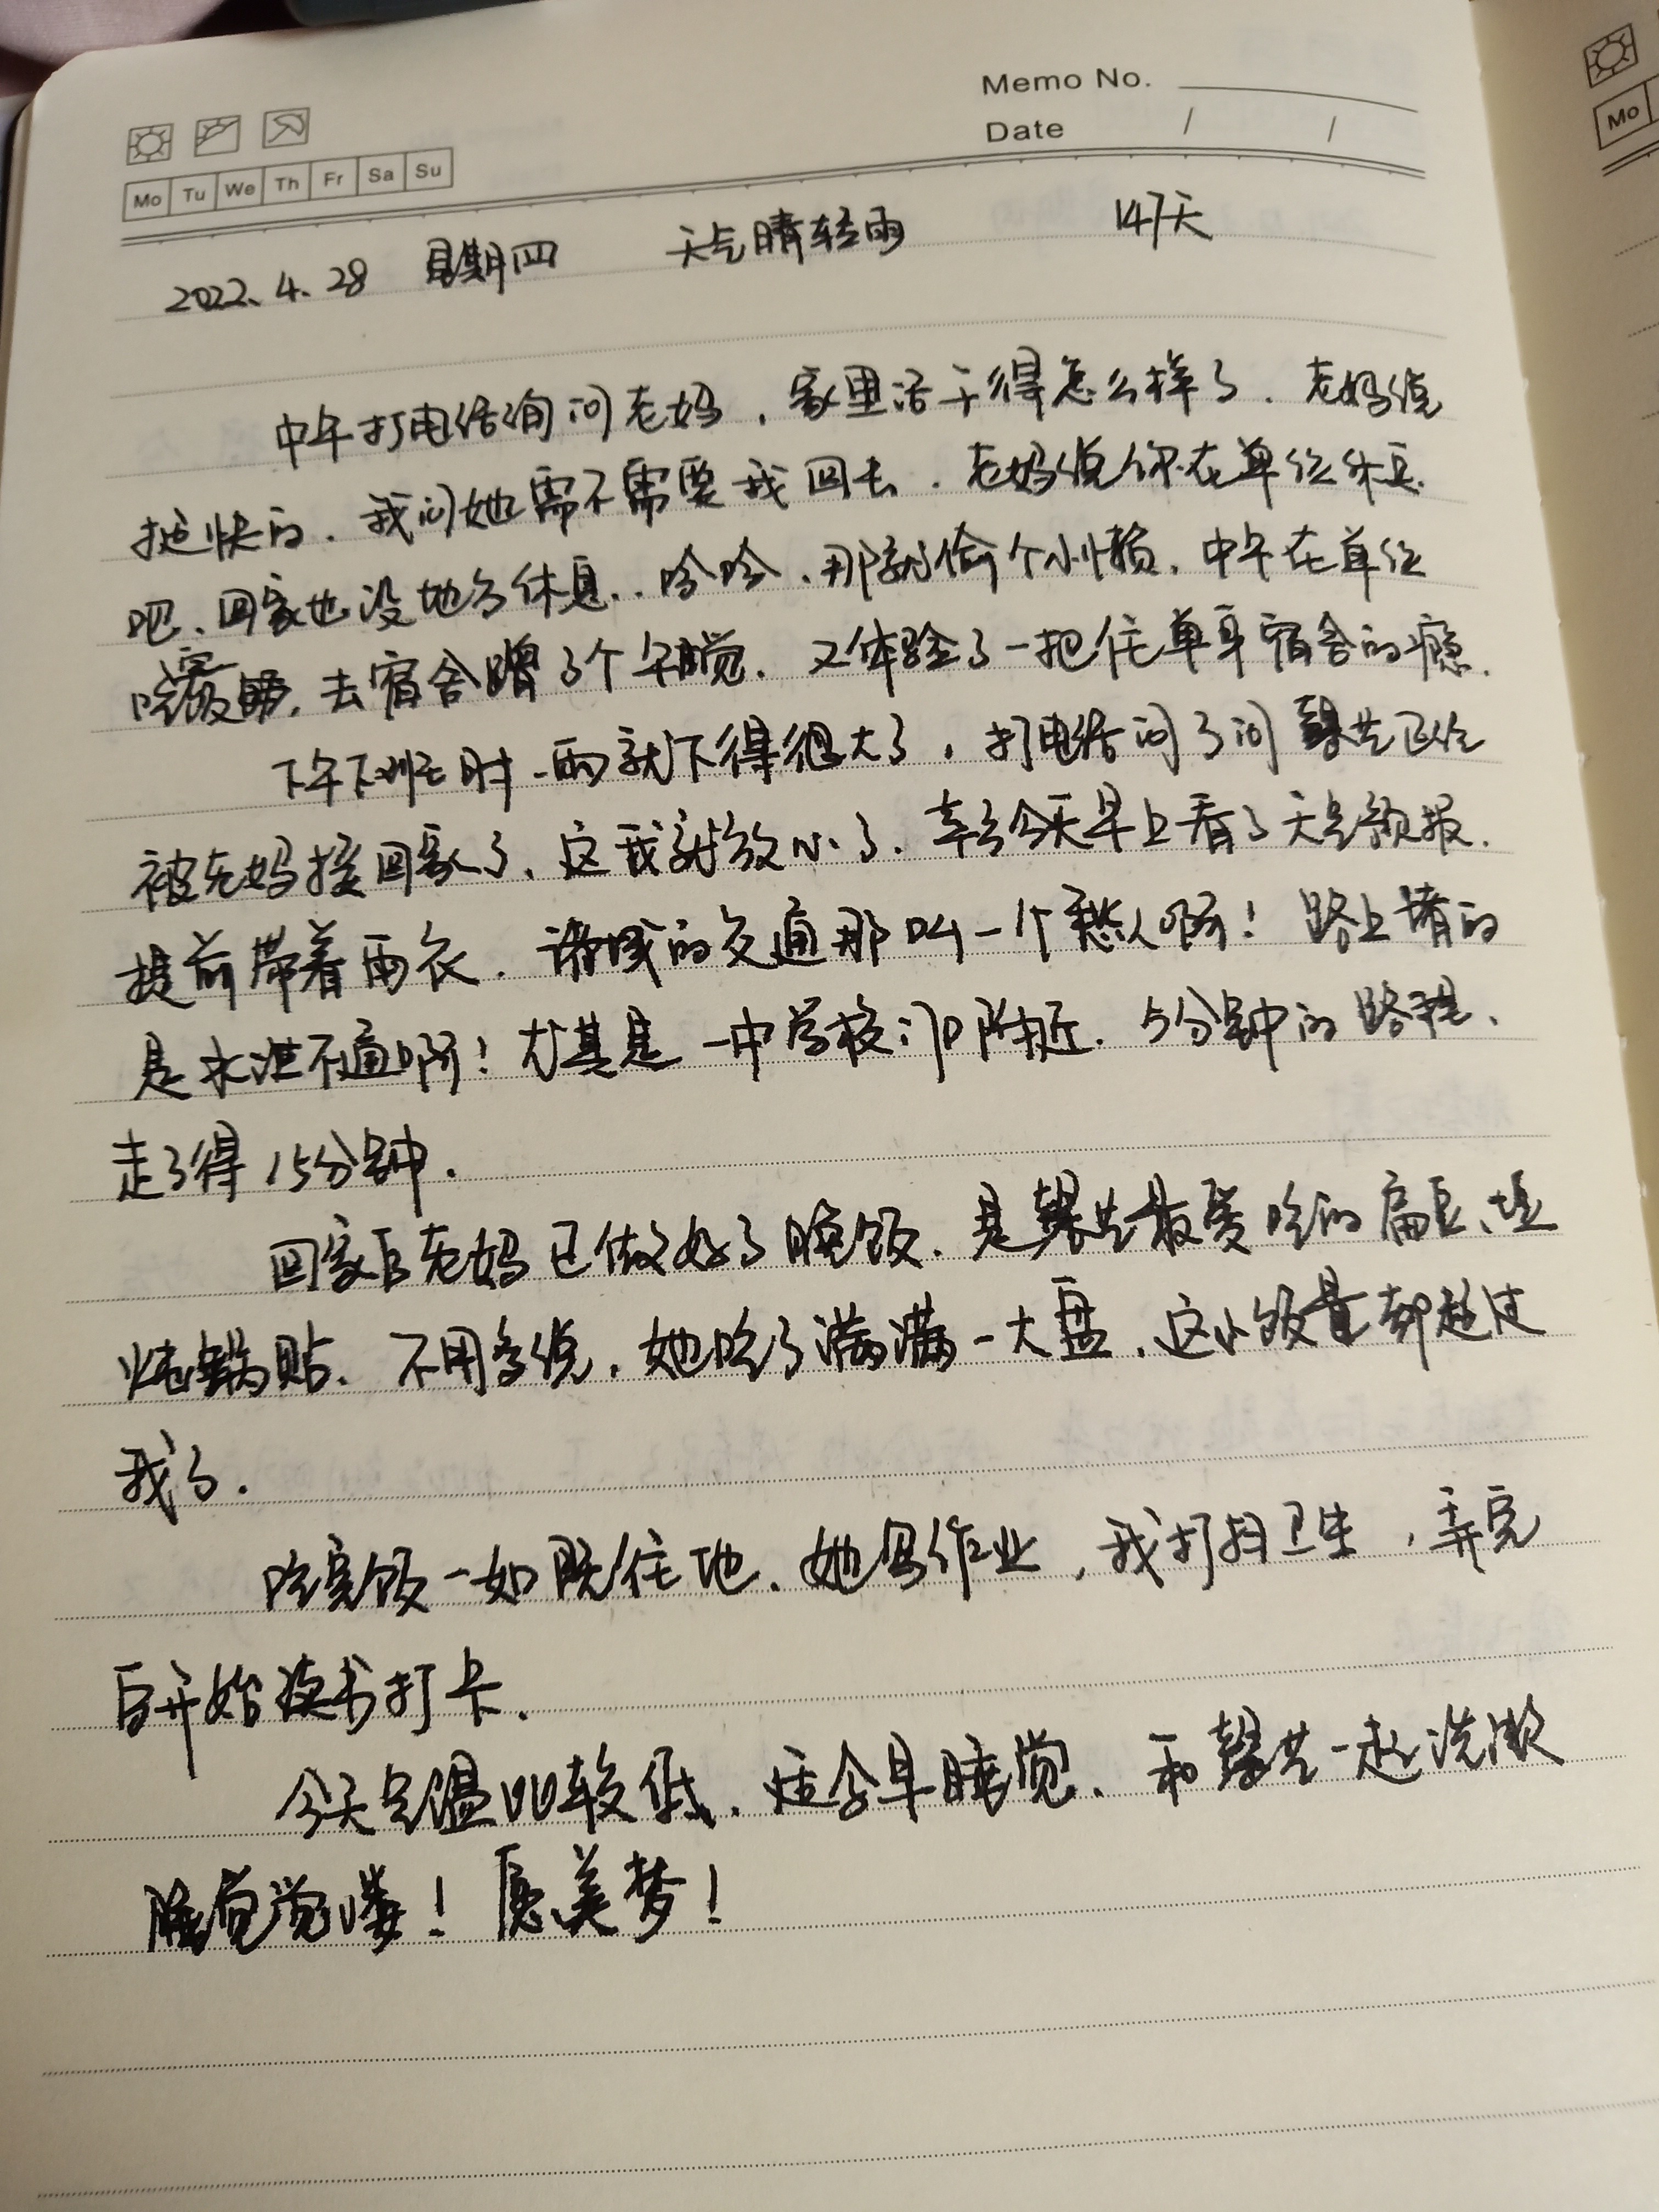 Memo No.
Date / /
Mo Tu We Th Fr Sa Su
Mo
2022.4.28 星期四 天气晴转雨 147天
中午打电话询问老妈，家里活干得怎么样了．老妈说
挺快的．我问她需不需要我回去．老妈说你在单位休息
吧、回家也没地方休息..哈哈、那就偷个小懒．中午在单位
吃完饭，去宿舍睡了个午觉．又体验了一把住单身宿舍的瘾．
下午下班时，雨就下得很大了，打电话问了问馨艺已经
被老妈接回家了、这我就放心了．幸亏今天早上看了天气预报．
提前带着雨衣．诸城的交通那叫一个愁人啊！路上堵的
是水泄不通啊！尤其是一中学校门口附近．5分钟的路程、
走了得15分钟．
回家后老妈已做好了晚饭．是馨艺最爱吃的扁豆、土豆
炖锅贴．不用多说，她吃了满满一大盘、这小饭量都超过
我了．
吃完饭一如既往地、她写作业，我打扫卫生，弄完
后开始读书打卡．
今天气温比较低．适合早睡觉、和馨艺一起洗漱
睡觉觉喽！愿美梦！